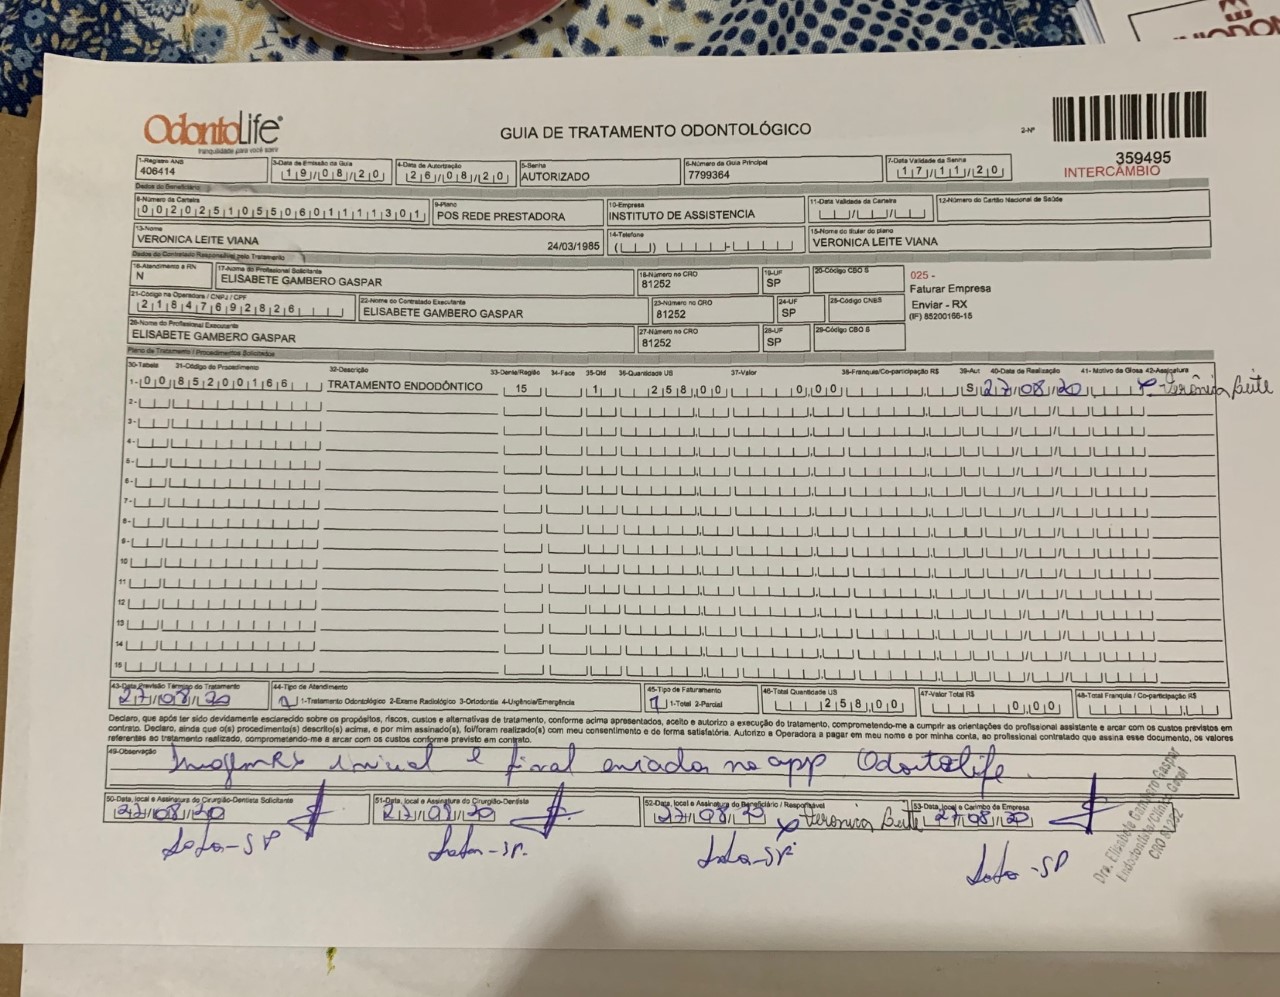 OdontoLife
tranquilidade para você sorrir
GUIA DE TRATAMENTO ODONTOLÓGICO
2-Nº
359495
INTERCÂMBIO
1-Registro ANS
406414
3-Data de Emissão da Guia
19/08/20
4-Data de Autorização
26/08/20
5-Senha
AUTORIZADO
6-Número da Guia Principal
7799364
7-Data Validade da Senha
17/11/20
Dados do Beneficiário
8-Número da Carteira
00202510550601111301
9-Plano
POS REDE PRESTADORA
10-Empresa
INSTITUTO DE ASSISTENCIA
11-Data Validade da Carteira
12-Número do Cartão Nacional de Saúde
13-Nome
VERONICA LEITE VIANA 24/03/1985
14-Telefone
15-Nome do titular do plano
VERONICA LEITE VIANA
Dados do Contratado Responsável pelo Tratamento
16-Atendimento a RN
N
17-Nome do Profissional Solicitante
ELISABETE GAMBERO GASPAR
18-Número no CRO
81252
19-UF
SP
20-Código CBO S
025 -
Faturar Empresa
Enviar - RX
(IF) 85200166-15
21-Código na Operadora / CNPJ / CPF
21847692826
22-Nome do Contratado Executante
ELISABETE GAMBERO GASPAR
23-Número no CRO
81252
24-UF
SP
25-Código CNES
26-Nome do Profissional Executante
ELISABETE GAMBERO GASPAR
27-Número no CRO
81252
28-UF
SP
29-Código CBO S
Plano de Tratamento / Procedimentos Solicitados
30-Tabela 31-Código do Procedimento 32-Descrição 33-Dente/Região 34-Face 35-Qtd 36-Quantidade US 37-Valor 38-Franquia/Co-participação R$ 39-Aut 40-Data da Realização 41- Motivo da Glosa 42-Assinatura
1- 00 85200166 TRATAMENTO ENDODÔNTICO 15 1 258,00 0,00 S 27/08/20 x Verônica Leite
2-
3-
4-
5-
6-
7-
8-
9-
10
11
12
13
14
15
43-Data Previsão Término do Tratamento
27/08/20
44-Tipo de Atendimento
1 1-Tratamento Odontológico 2-Exame Radiológico 3-Ortodontia 4-Urgência/Emergência
45-Tipo de Faturamento
1 1-Total 2-Parcial
46-Total Quantidade US
258,00
47-Valor Total R$
0,00
48-Total Franquia / Co-participação R$
Declaro, que após ter sido devidamente esclarecido sobre os propósitos, riscos, custos e alternativas de tratamento, conforme acima apresentados, aceito e autorizo a execução do tratamento, comprometendo-me a cumprir as orientações do profissional assistente e arcar com os custos previstos em
contrato. Declaro, ainda que o(s) procedimento(s) descrito(s) acima, e por mim assinado(s), foi/foram realizado(s) com meu consentimento e de forma satisfatória. Autorizo a Operadora a pagar em meu nome e por minha conta, ao profissional contratado que assina esse documento, os valores
referentes ao tratamento realizado, comprometendo-me a arcar com os custos conforme previsto em contrato.
49-Observação
inicial e final enviadas no app Odontolife.
50-Data, local e Assinatura do Cirurgião-Dentista Solicitante
27/08/20
51-Data, local e Assinatura do Cirurgião-Dentista
27/08/20
52-Data, local e Assinatura do Beneficiário / Responsável
27/08/20 x Verônica Leite
53-Data, local e Carimbo da Empresa
27/08/20
Dra. Elisabete Gambero Gaspar
Endodontista/Clínica Geral
CRO 81252